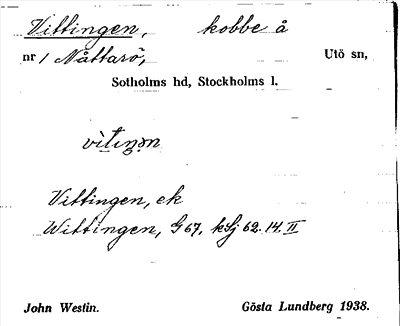 Vittingen, kobbe å
nr 1 Nåttarö, Utö sn,
Sotholms hd, Stockholms l.
Vittingen, ek
Wittingen, G 67, kSj 62. 14. II
John Westin. Gösta Lundberg 1938.